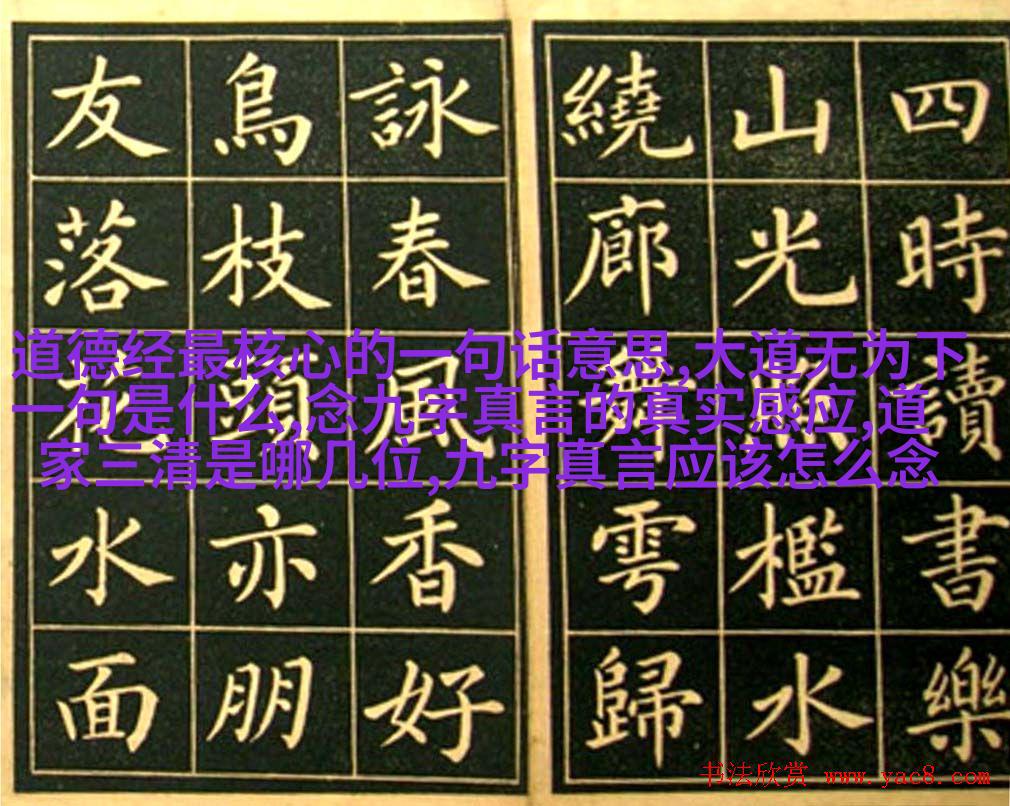 四時讀書樂
山光照檻水
繞廊舞雩歸
詠春風香好
鳥枝頭亦朋
友落花水面
道德经最核心的一句话意思,大道无为下
一句是什么,念九字真言的真实感应,道
家三清是哪几位,九字真言应该怎么念
书法欣赏 www.yac8.com